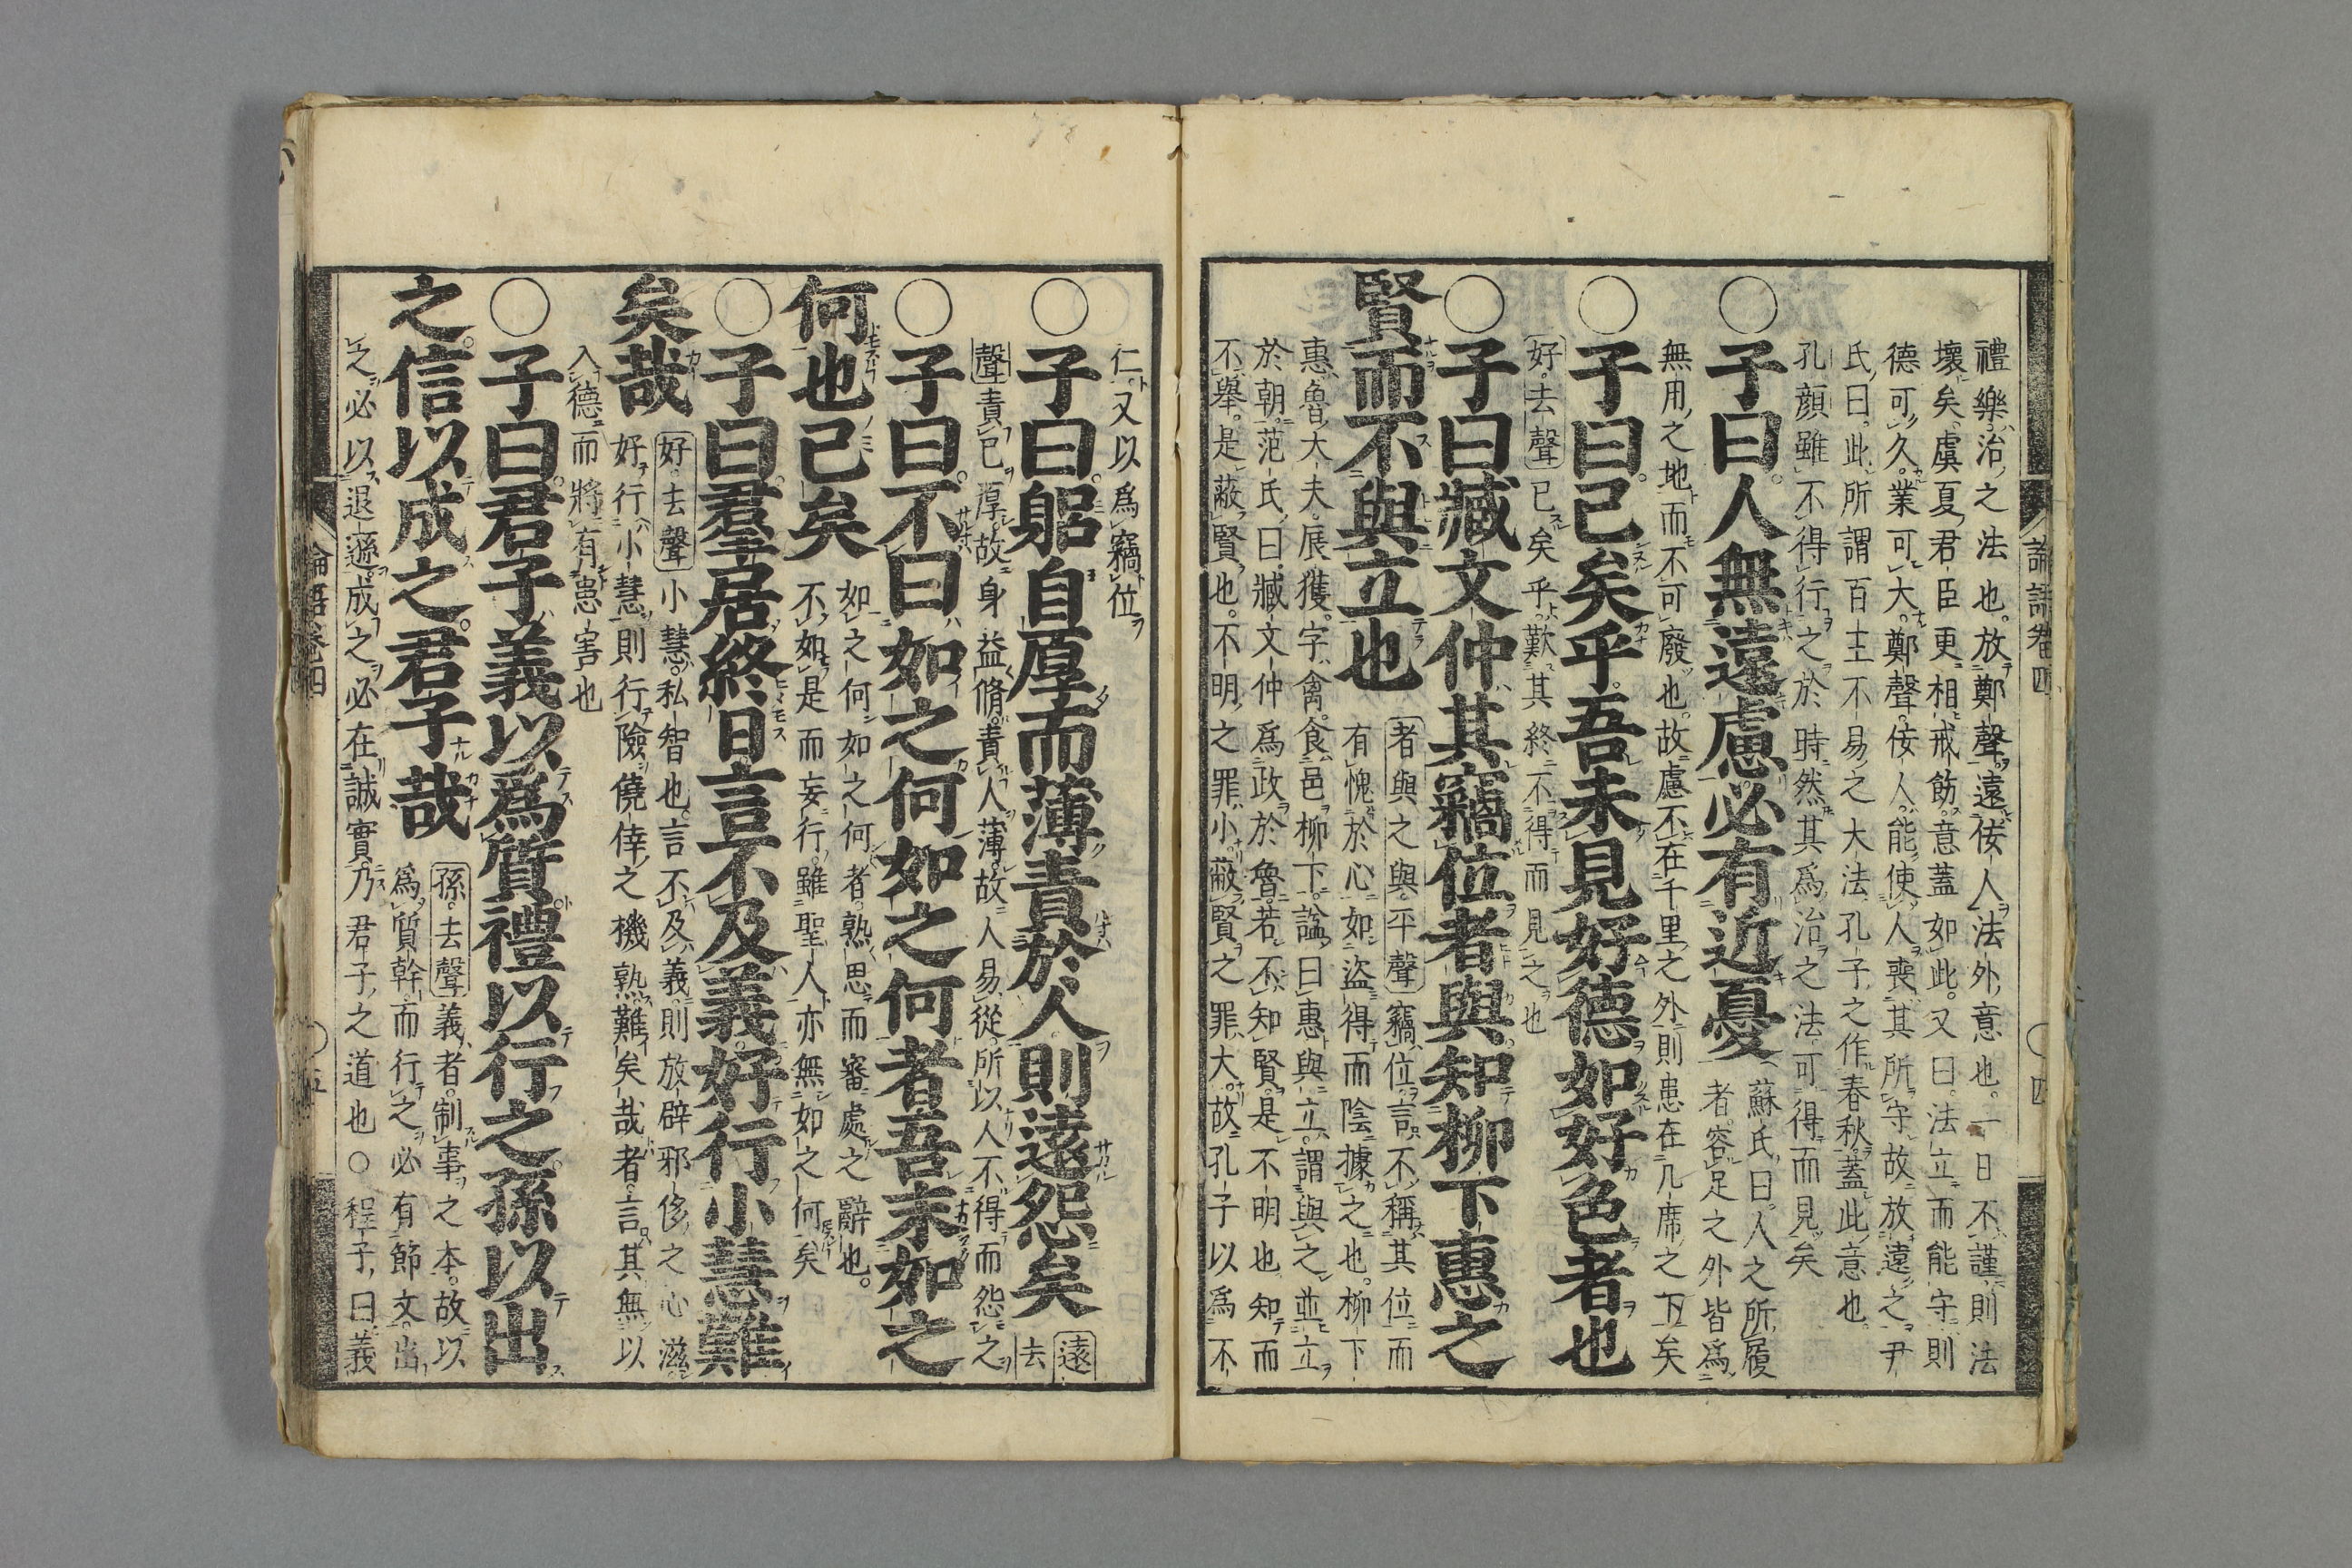 論語卷四
禮樂治之法也。放鄭聲遠佞人法外意也。一日不謹則法
壞矣。虞夏君臣更相戒飭。意蓋如此。又曰。法立而能守則
德可久。業可大。鄭聲。佞人。能使人喪其所守故放遠之尹
氏曰。此所謂百王不易之大法孔子之作春秋。蓋此意也。
孔顔雖不得行之於時然其爲治之法可得而見矣
○子曰。人無遠慮必有近憂
蘇氏曰。人之所履
者。容足之外皆爲
無用之地而不可廢也。故慮不在千里之外則患在几席之下矣
○子曰。已矣乎。吾未見好德如好色者也
好。去聲 已矣乎。歎其終不得而見之也
○子曰臧文仲其竊位者與知柳下惠之
賢而不與立也
者與之與。平聲 竊位。言不稱其位而
有愧於心如盗得而陰據之也。柳下
惠。魯大夫。展獲。字禽。食邑柳下。謚曰惠。與立。謂與之並立
於朝。范氏曰。臧文仲爲政於魯。若不知賢。是不明也。知而
不舉。是蔽賢也。不明之罪小。蔽賢之罪大。故孔子以爲不
仁。又以爲竊位
○子曰。躬自厚而薄責於人則遠怨矣
遠去
聲 責己厚。故身益脩。責人薄。故人易從。所以人不得而怨之
○子曰。不曰如之何如之何者吾末如之
何也已矣
如之何如之何者。熟思而審處之辭也。
不如是而妄行。雖聖人亦無如之何矣
○子曰。羣居終日言不及義。好行小慧難
矣哉
好。去聲 小慧。私智也。言不及義。則放辟邪侈之心滋。
好行小慧。則行險僥倖之機熟。難矣哉者。言其無以
入德而將有患害也
○子曰。君子義以爲質禮以行之。孫以出
之。信以成之。君子哉
孫。去聲 義者。制事之本。故以
爲質幹。而行之必有節文。出
之必以退遜。成之必在誠實。乃君子之道也 ○程子曰。義
論語卷四
五